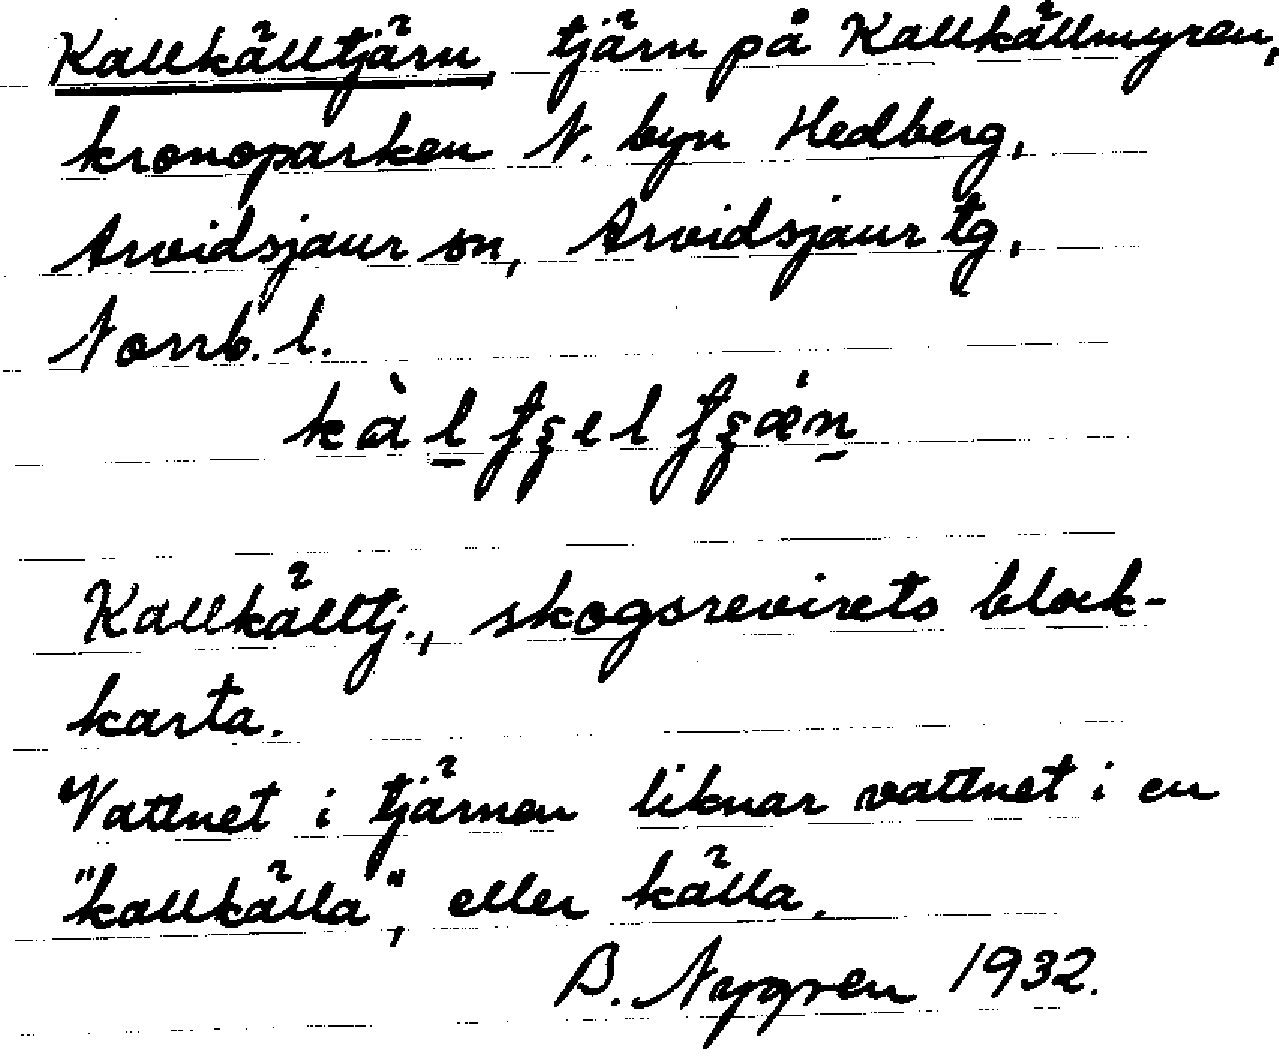 Kallkälltjärn, tjärn på Kallkällmyren,
kronoparken N. byn Hedberg,
Arvidsjaur sn, Arvidsjaur tg,
Norrb. l.
Kallkälltj., skogsrevirets block-
karta.
Vattnet i tjärnen liknar vattnet i en
"kallkälla", eller källa.
B. Nygren 1932.